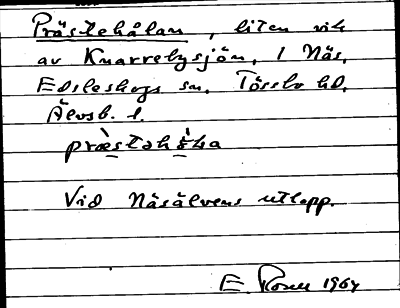 Prästehålan, liten vik
av Knarrebysjön, 1 Näs,
Edsleskogs sn, Tössbo hd,
Älvsb. l.
Vid Näsälvens utlopp.
E. Rosell 1964